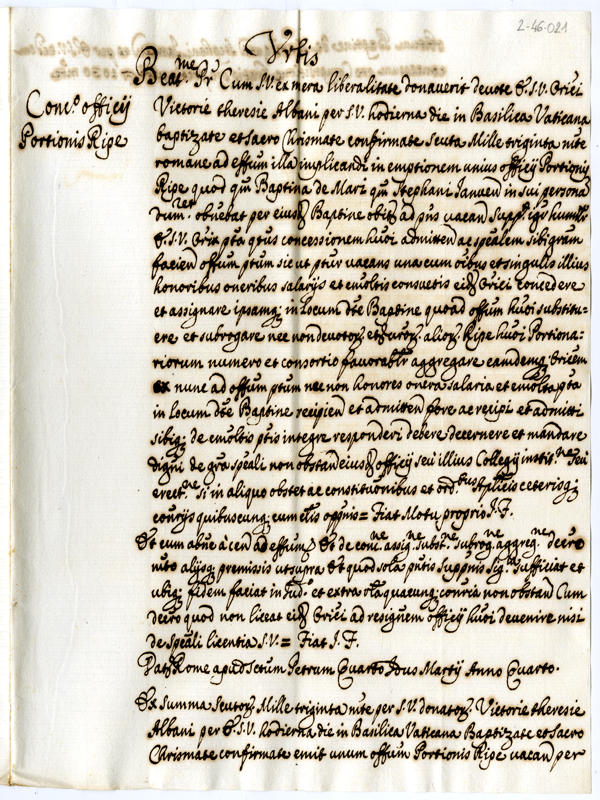 2-46-021
Beat.me Pr Cum S.V. ex mera liberalitate donaverit devote E.S.V. Orici
Conc.o officij
Portionis Ripe
Victorie theresie Albani per S.V. hodierna die in Basilica Vaticana
baptizate et Sacro Chrismate confirmate Scuta Mille triginta nite
romane ad effum illa implicandi in emptionem unius officij Portionis
Ripe quod qm Baptina de Mari qm Stephani Januen in sui persona
obitu ad pns vacan Supp.t
E.S.V. Orix pta qtus concessionem huoi admitten ac spealem sibi gram
facien offum ptum sic ut ptur vacans una cum oibus et singulis illius
honoribus oneribus salarijs et emoltis consuetis Orici concedere
et assignare ipsamq; in Locum dte Baptine quoad offum huoi substitu=
ere et subrogare nec non Ripe huoi Portiona:
riorum numero et consortio favorablr aggregare eamdemq; Oricem
nunc ad offum ptum nec non honores onera salaria et emolta pta
in locum dte Baptine recipien et admitten fore ac recipi et admitti
sibiq; de emoltis ptis integre responderi debere decernere et mandare
digni de gra speali non obstan officij seu illius Collegij instit.ne Seu
erect.ne Si in aliquo obstet ac constitutionibus et ord.bus Aplicis ceterisq;
contrijs quibuscunq; cum clis oppnis = Fiat Motu proprio J.F.
Et cum absne a cen ad effum Et de conc.ne assig.ne Subst.ne Subrog.ne aggreg.ne decro
alijsq; premissis ut supra Et quod sola pntis Suppnis Sig.ra Sufficiat et
ubiq; fidem faciat in Jud.o et extra qlacunq; contria non obstan Cum
decro quod non liceat Orici ad resignem officij huoi devenire nisi
de Speali licentia S.V. = Fiat J.F.
Dat Rome apud Sctum Petrum Quarto Idus Martij Anno Quarto.
Ex Summa Scutor Mille triginta nite per S.V. donator Victorie theresie
Albani per E.S.V. hodierna die in Basilica Vaticana Baptizate et Sacro
Chrismate confirmate emit unum offum Portionis Ripe vacan per